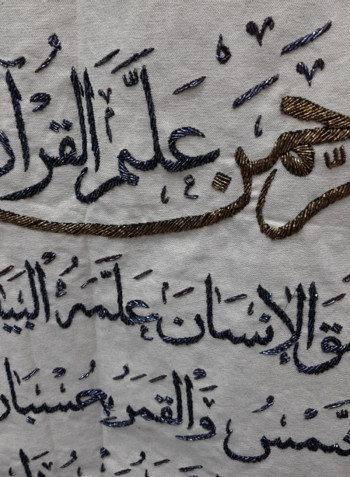 رحمن عَلَّمَ الْقُرْآ
ق الْإِنسَانَ عَلَّمَهُ الْبَيَا
شَّمْسُ وَالْقَمَرُ بِحُسْبَا